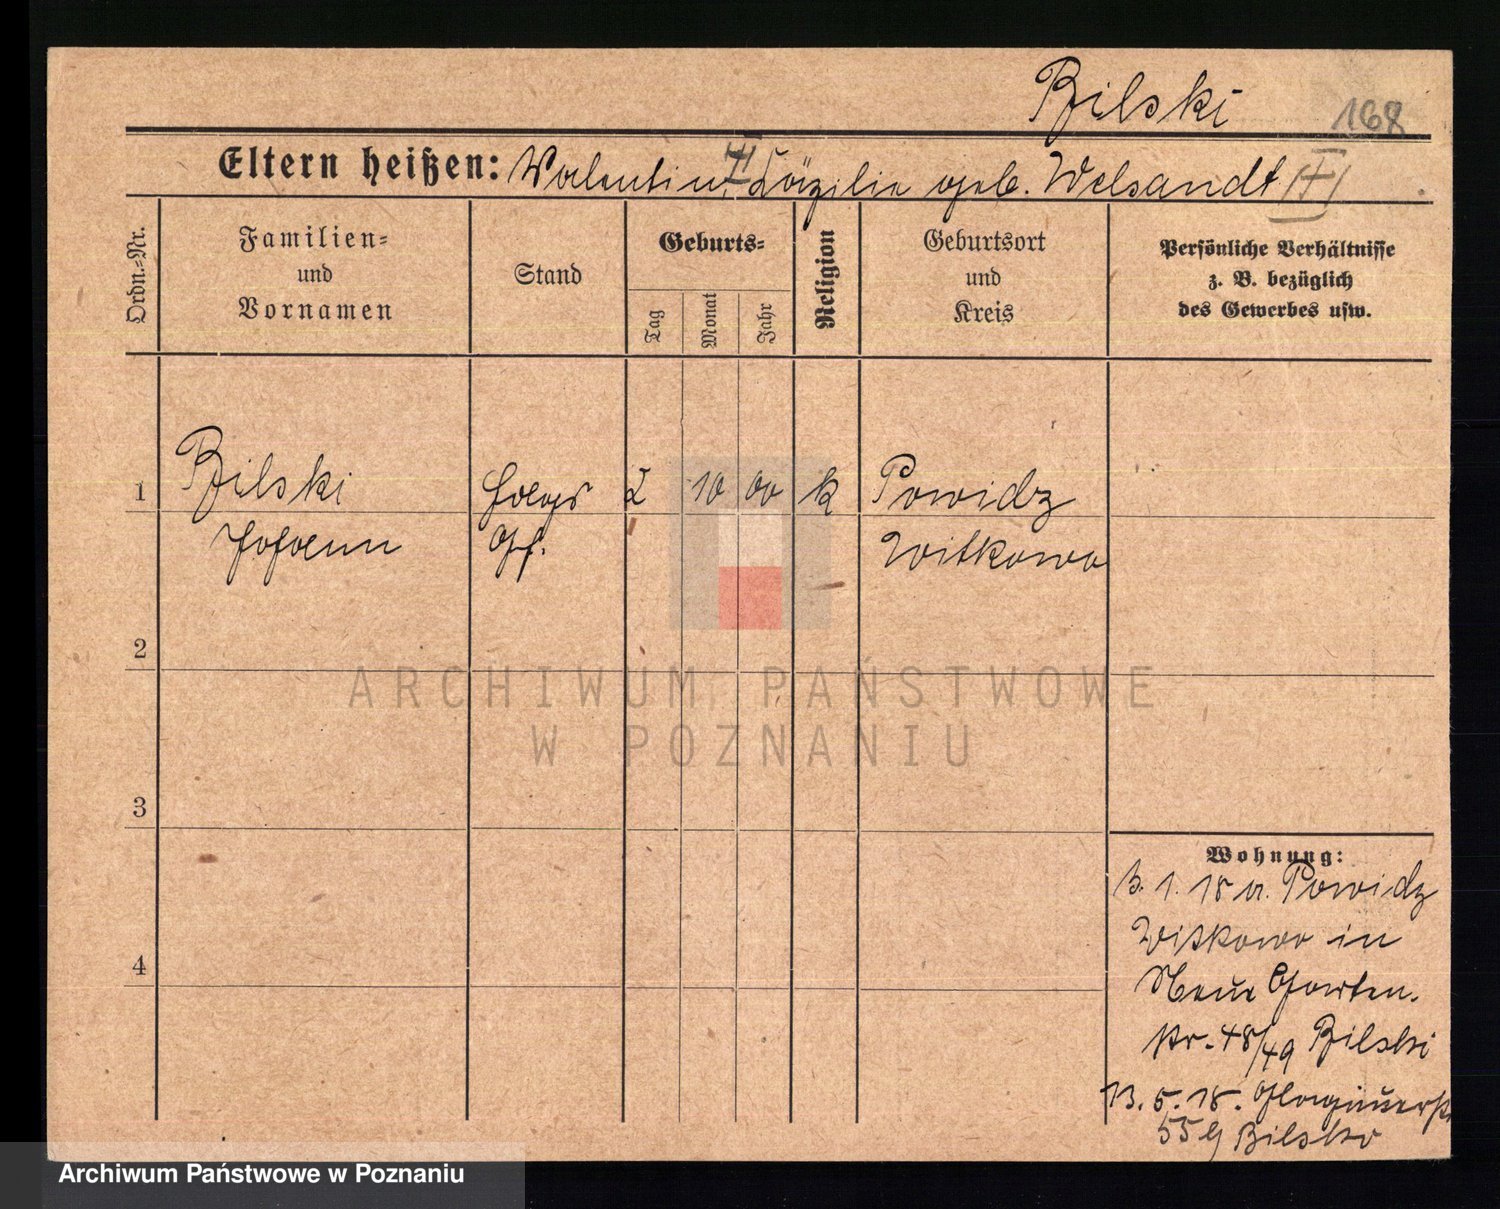 Bilski
168
Eltern heißen: Valentin, Cäzilie geb. Welsandt
Ordn.-Nr.
Familien-
und
Vornamen
Stand
Geburts-
Tag
Monat
Jahr
Religion
Geburtsort
und
Kreis
Persönliche Verhältnisse
z. B. bezüglich
des Gewerbes usw.
1
Bilski
Johann
2 10 00 k
Powidz
Witkowo
2
3
4
Wohnung:
3. 1. 18 a. Powidz
Witkowo in
Neue Garten-
str. 48/49 Bilski
13. 5. 18. Glogauerstr.
55 Bilski
ARCHIWUM PAŃSTWOWE
W POZNANIU
Archiwum Państwowe w Poznaniu